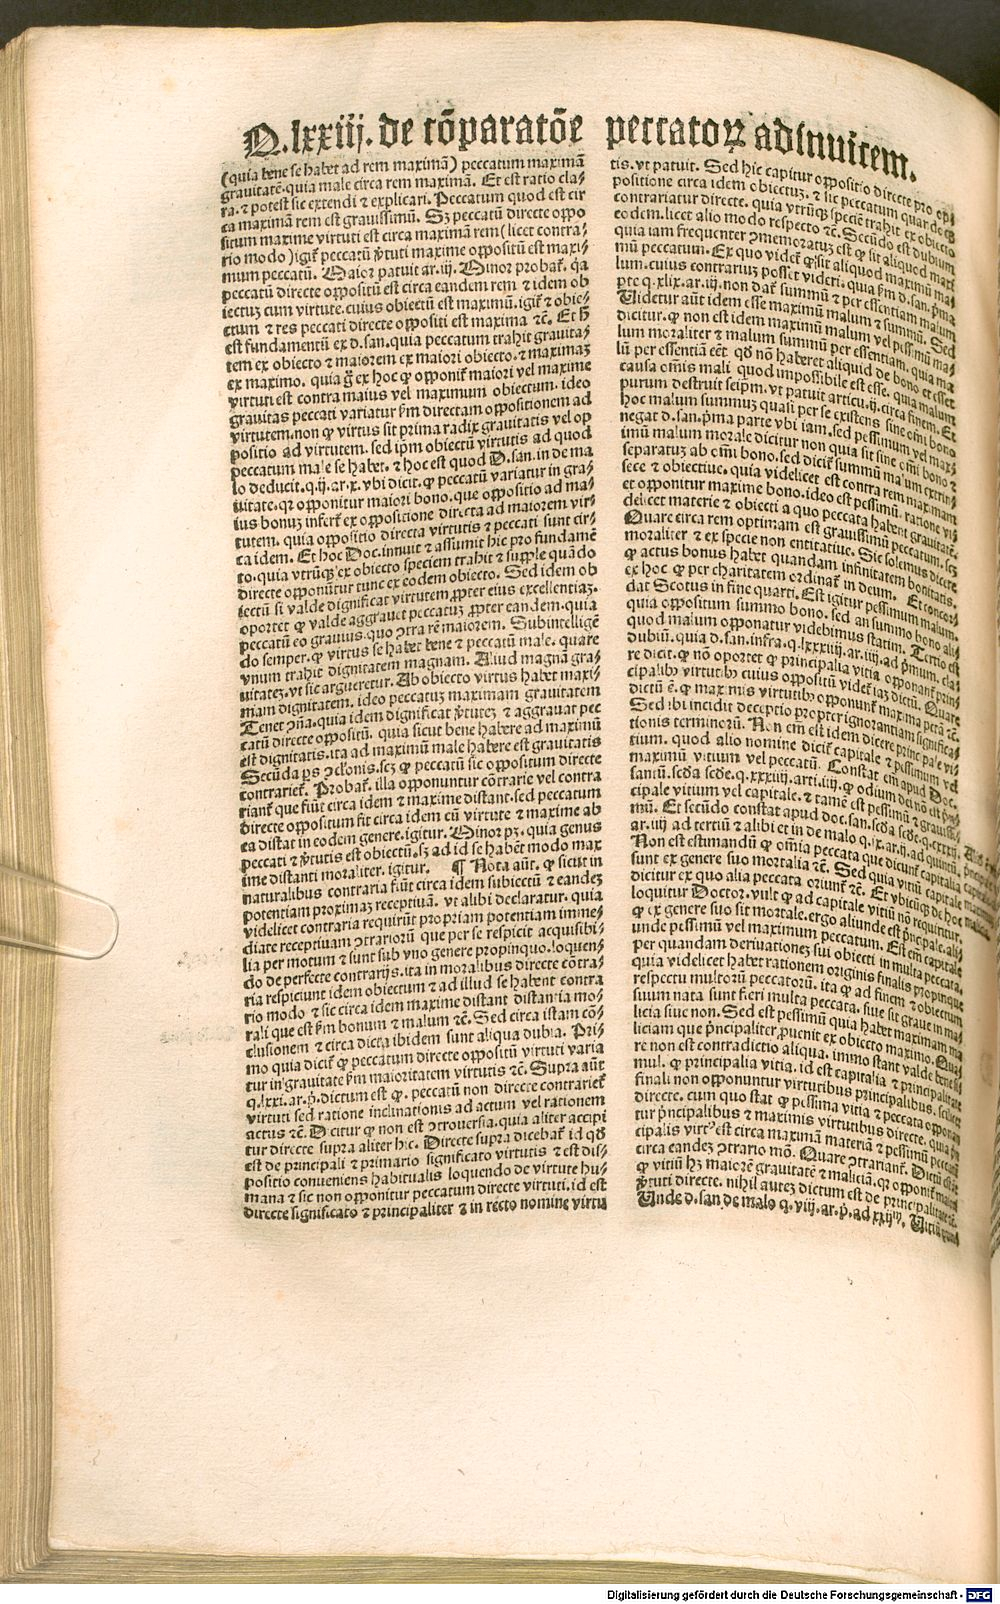 Q. lxxiij. de cōparatōe peccatoꝝ adinuicem.
(quia bene se habet ad rem maximā) peccatum maximā
grauitatē. quia male circa rem maximā. Et est ratio cla⸗
ra. ⁊ potest sic extendi ⁊ explicari. Peccatum quod est cir
ca maximā rem est grauissimū. Sꝫ peccatū directe oppo
situm maxime virtuti est circa maximā rem (licet contra⸗
rio modo) igit᷑ peccatū v̓tuti maxime oppositū est maxi⸗
mum peccatū. Maior patuit ar. iij. Minor probat᷑. q̄a
peccatū directe oppositū est circa eandem rem ⁊ idem ob
iectuꝫ cum virtute. cuius obiectū est maximū. igit᷑ ⁊ obie⸗
ctum ⁊ res peccati directe oppositi est maxima ⁊c̄. Et h̄
est fundamentū ex d. san. quia peccatum trahit grauita⸗
tem ex obiecto ⁊ maiorem ex maiori obiecto. ⁊ maximaꝫ
ex maximo. quia g̊ ex hoc ꝙ opponit᷑ maiori vel maxime
virtuti est contra maius vel maximum obiectum. ideo
grauitas peccati variatur ẜm directam oppositionem ad
virtutem. non ꝙ virtus sit prima radix grauitatis vel op
positio ad virtutem. sed ip̄m obiectū virtutis ad quod
peccatum male se habet. ⁊ hoc est quod D. san. in de ma
lo deducit. q. ij. ar. x. vbi dicit. ꝙ peccatū variatur in gra⸗
uitate. qꝛ opponitur maiori bono. que oppositio ad ma⸗
ius bonuꝫ infert᷑ ex oppositione directa ad maiorem vir⸗
tutem. quia oppositio directa virtutis ⁊ peccati sunt cir⸗
ca idem. Et hoc Doc. innuit ⁊ assumit hic pro fundamē
to. quia vtrūqꝫ ex obiecto speciem trahit ⁊ supple quādo
directe opponūtur tunc ex eodem obiecto. Sed idem ob
iectū si valde dignificat virtutem ꝓpter eius excellentiaꝫ.
oportet ꝙ valde aggrauet peccatuꝫ ꝓpter eandem. quia
peccatū eo grauius. quo ↄtra rē maiorem. Subintelligē
do semper. ꝙ virtus se habet bene ⁊ peccatū male. quare
vnum trahit dignitatem magnam. Aliud magnā gra⸗
uitateꝫ. vt sic argueretur. Ab obiecto virtus habet maxi⸗
mam dignitatem. ideo peccatuꝫ maximam grauitatem
Tenet ↄn̄a. quia idem dignificat v̓tuteꝫ ⁊ aggrauat pec
catū directe oppositū. quia sicut bene habere ad maximū
est dignitatis. ita ad maximū male habere est grauitatis
Secūda ps̄ ↄclonis. scꝫ ꝙ peccatū sic oppositum directe
contrariet᷑. Probat᷑. illa opponuntur cōtrarie vel contra
riant᷑ que fiūt circa idem ⁊ maxime distant. sed peccatum
directe oppositum fit circa idem cū virtute ⁊ maxime ab
ea distat in eodem genere. igitur. Minor pꝫ. quia genus
peccati ⁊ v̓tutis est obiectū. sꝫ ad id se habēt modo max
ime distanti moraliter. igitur. ¶ Nota aūt. ꝙ sicut in
naturalibus contraria fiūt circa idem subiectū ⁊ eandeꝫ
potentiam proximaꝫ receptiuā. vt alibi declaratur. quia
videlicet contraria requirūt propriam potentiam imme⸗
diate receptiuam ↄtrarioruꝫ que per se respicit acquisibi⸗
lia per motum ⁊ sunt sub vno genere propinquo. loquen⸗
do de perfecte contrarijs. ita in moralibus directe cōtra⸗
ria respiciunt idem obiectum ⁊ ad illud se habent contra
rio modo ⁊ sic circa idem maxime distant distantia mo⸗
rali que est ẜm bonum ⁊ malum ⁊c̄. Sed circa istam cō⸗
clusionem ⁊ circa dicta ibidem sunt aliqua dubia. Pri⸗
mo quia dicit᷑ ꝙ peccatum directe oppositū virtuti varia
tur in grauitate ẜm maioritatem virtutis ⁊c̄. Supra aūt
q. lxxi. ar. p̓. dictum est ꝙ. peccatū non directe contrariet᷑
virtuti sed ratione inclinationis ad actum vel rationem
actus ⁊c̄. Dicitur ꝙ non est ↄtrouersia. quia aliter accipi
tur directe supra aliter hic. Directe supra dicebat᷑ id qd̄
est de principali ⁊ primario significato virtutis ⁊ est dis⸗
positio conueniens habitualis loquendo de virtute hu⸗
mana ⁊ sic non opponitur peccatum directe virtuti. id est
directe significato ⁊ principaliter ⁊ in recto nomine virtu
tis. vt patuit. Sed hic capitur oppositio directe pro op⸗
positione circa idem obiectuꝫ. ⁊ sic peccatum quandoqꝫ
contrariatur directe. quia vtrūqꝫ speciē trahit ex obiecto
eodem. licet alio modo respecto ⁊c̄. Secūdo est dubium
quia iam frequenter ↄmemoratuꝫ est ꝙ sit aliquod maxi
mū peccatum. Ex quo videt᷑ ꝙ sit aliquod maximū ma⸗
lum. cuius contrarium posset videri. quia ẜm d. san. p̓ma
p̱te q. xlix. ar. iij. non dat᷑ summū ⁊ per essentiam malum
Videtur aūt idem esse maximū malum ⁊ summū. Sed
dicitur. ꝙ non est idem maximū malum vel pessimū ma⸗
lum moraliter ⁊ malum summū per essentiam. quia ma
lū per essentiā eēt qd̄ nō haberet aliquid de bono et esset
causa om̄is mali quod impossibile est esse. quia malum
purum destruit seip̄m. vt patuit articu. ij. circa finem. Et
hoc malum summuꝫ quasi per se existens sine om̄i bono
negat d. san. p̓ma parte vbi iam. sed pessimum vel maxi⸗
imū malum morale dicitur non quia sit sine om̄i bono ⁊
separatuꝫ ab om̄i bono. sed dicit᷑ summū malum extrin⸗
sece ⁊ obiectiue. quia videlicet est contra rem maximam
et opponitur maxime bono. ideo est pessimū. ratione vi⸗
delicet materie ⁊ obiecti a quo peccata habent grauitatē.
Quare circa rem optimam est grauissimū peccatum. scꝫ
moraliter ⁊ ex specie non entitatiue. Sic solemus dicere
ꝙ actus bonus habet quandam infinitatem bonitatis.
ex hoc ꝙ per charitatem ordinat᷑ in deum. Et concor⸗
dat Scotus in fine quarti. Est igitur pessimum malum.
quia oppositum summo bono. sed an summo bono ali⸗
quod malum opponatur videbimus statim. Tertio est
dubiū. quia d. san. infra. q. lxxxiiij. ar. iiij. ad p̓mum. cla⸗
re dicit. ꝙ nō oportet ꝙ principalia vitia opponant᷑ prin
cipalibꝰ virtutibꝰ cuius oppositū videt᷑ iaꝫ dictū. Quare
dictū ē. ꝙ maximis virtutibꝰ opponunt᷑ maxima pctā ⁊c̄.
Sed ibi incidit deceptio propter ignorantiam significa⸗
tionis terminorū. Non em̄ est idem dicere principale vi⸗
tium. quod alio nomine dicit᷑ capitale ⁊ pessimum vel
maximū vitium vel peccatū. Constat em̄ apud Doc.
sanctū. sc̄da sc̄de. q. xxxiiij. arti. iiij. ꝙ odium dei nō est prin
cipale vitium vel capitale. ⁊ tamē est pessimū ⁊ grauissi⸗
mū. Et secūdo constat apud doc. san. sc̄da sc̄de. q. cxxxij.
ar. iij ad tertiū ⁊ alibi et in de malo q. ix. ar. ij. ad quintū.
Non est estimandū ꝙ om̄ia peccata que dicunt᷑ capitalia
sunt ex genere suo mortalia ⁊c̄. Sed quia vitiū capitale
dicitur ex quo alia peccata oriunt᷑ ⁊c̄. Et vbicūqꝫ de hoc
loquitur Doctor. vult ꝙ ad capitale vitiū nō requiritur.
ꝙ ex genere suo sit mortale. ergo aliunde est p̓ncipale. ali⸗
unde pessimū vel maximum peccatum. Est em̄ capitale
per quandam deriuationeꝫ sui obiecti in multa peccata.
quia videlicet habet rationem originis finalis propinque
respectu multorū peccatorū. ita ꝙ ad finem ⁊ obiectum
suum nata sunt fieri multa peccata. siue sit graue in ma⸗
licia siue non. Sed est pessimū quia habet maximam ma
liciam que p̓ncipaliter ꝓuenit ex obiecto maximo. Qua⸗
re non est contradictio aliqua. immo stant valde bene si⸗
mul. ꝙ principalia vitia. id est capitalia ⁊ principalitate
finali non opponuntur virtutibus principalibus. scilicet
directe. cum quo stat ꝙ pessima vitia ⁊ peccata opponan
tur p̓ncipalibus ⁊ maximis virtutibus directe. quia prin
cipalis virtꝰ est circa maximā materiā ⁊ pessimū peccatū
circa eandeꝫ ↄtrario mō. Quare ↄtrariant᷑. Dictū est
ꝙ vitiū hꝫ maiorē grauitatē ⁊ maliciā. qꝛ opponit᷑ maiori
v̓tuti directe. nihil auteꝫ dictum est de principalitate ⁊c̄.
Unde d. san. de malo q. viij. ar. p̓. ad xxijᵐ.